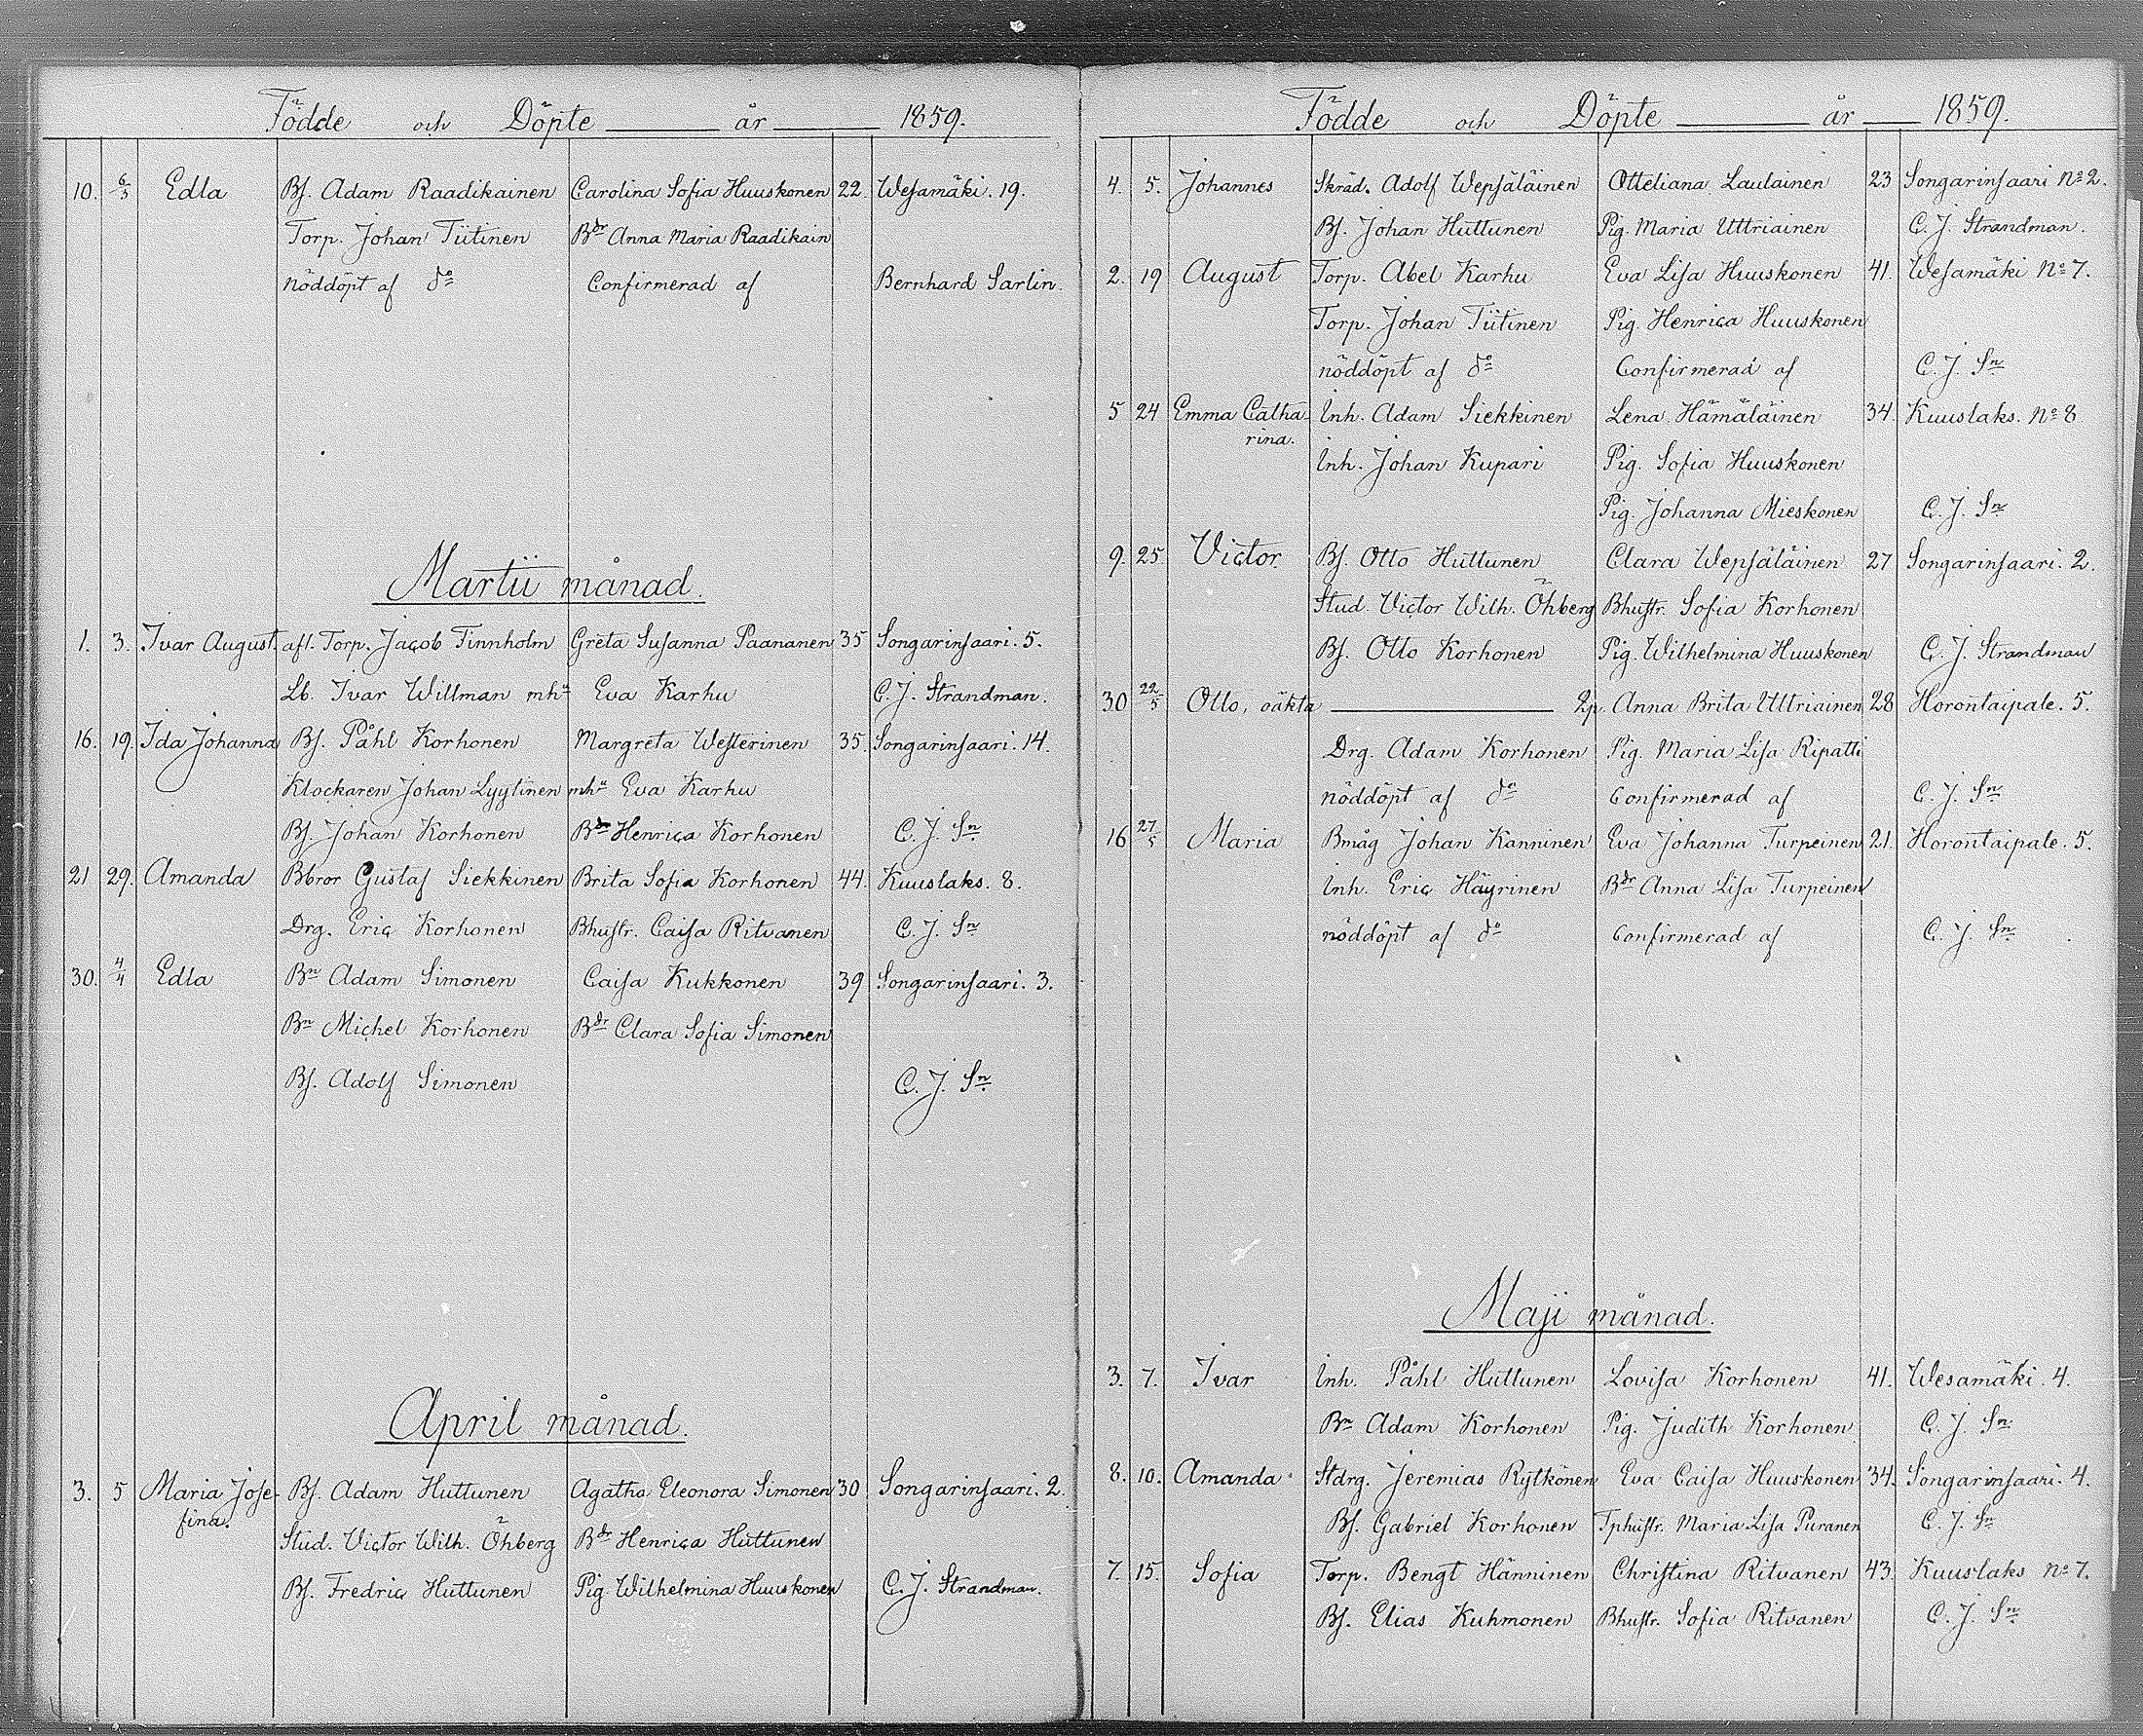 Födde och Döpte år 1859.
10. 6/3 Edla Bs. Adam Raadikainen Carolina Sofia Huuskonen 22. Wesamäki. 19.
Torp. Johan Tiitinen Bdr Anna Maria Raadikain
nöddöpt af do Confirmerad af Bernhard Sarlin.
Martii månad.
1. 3. Ivar August. afl. Torp. Jacob Finnholm Greta Susanna Paananen 35 Songarinsaari. 5.
Lb. Ivar Willman mhu Eva Karhu C. J. Strandman.
16. 19. Ida Johanna Bs. Påhl Korhonen Margreta Westerinen 35. Songarinsaari. 14.
Klockaren Johan Lyytinen mhu Eva Karhu
Bs. Johan Korhonen Bdr Henrica Korhonen C. J. Sn
21 29. Amanda Bbror Gustaf Siekkinen Brita Sofia Korhonen 44. Kuuslaks. 8.
Drg. Eric Korhonen Bhustr. Caisa Ritvanen C. J. Sn
30. 4/4 Edla Bn Adam Simonen Caisa Kukkonen 39 Songarinsaari. 3.
Bn Michel Korhonen Bdr Clara Sofia Simonen
Bs. Adolf Simonen C. J. Sn
April månad.
3. 5 Maria Jose- Bs. Adam Huttunen Agatha Eleonora Simonen 30 Songarinsaari. 2.
fina.
Stud. Victor Wilh. Öhberg Bdr Henrica Huttunen
Bs. Fredric Huttunen Pig. Wilhelmina Huuskonen C. J. Strandman.
Födde och Döpte år 1859.
4. 5. Johannes Skräd. Adolf Wepsäläinen Otteliana Laulainen 23 Songarinsaari No 2.
Bs. Johan Huttunen Pig. Maria Uttriainen C. J. Strandman.
2. 19 August Torp. Abel Karhu Eva Lisa Huuskonen 41. Wesamäki No 7.
Torp. Johan Tiitinen Pig. Henrica Huuskonen
nöddöpt af do Confirmerad af C. J. Sn
5 24 Emma Catha- Inh. Adam Siekkinen Lena Hämäläinen 34. Kuuslaks. No 8
rina.
Inh. Johan Kupari Pig. Sofia Huuskonen
Pig. Johanna Mieskonen C. J. Sn
9. 25. Victor. Bs. Otto Huttunen Clara Wepsäläinen 27 Songarinsaari. 2.
Stud. Victor Wilh. Öhberg Bhustr. Sofia Korhonen
Bs. Otto Korhonen Pig. Wilhelmina Huuskonen C. J. Strandman
30 22/5 Otto, oäkta 2p. Anna Brita Uttriainen 28 Horontaipale. 5.
Drg. Adam Korhonen Pig. Maria Lisa Ripatti
nöddöpt af do Confirmerad af C. J. Sn
16 27/5 Maria Bmåg Johan Kanninen Eva Johanna Turpeinen 21. Horontaipale. 5.
Inh. Eric Häyrinen Bdr Anna Lisa Turpeinen
nöddöpt af do Confirmerad af C. J. Sn
Maji månad.
3. 7. Ivar Inh. Påhl Huttunen Lovisa Korhonen 41. Wesamäki. 4.
Bn Adam Korhonen Pig. Judith Korhonen C. J. Sn
8. 10. Amanda Stdrg. Jeremias Rytkönen Eva Caisa Huuskonen 34. Songarinsaari. 4.
Bs. Gabriel Korhonen Tphustr. Maria Lisa Puranen C. J. Sn
7. 15. Sofia Torp. Bengt Hänninen Christina Ritvanen 43. Kuuslaks No 7.
Bs. Elias Kuhmonen Bhustr. Sofia Ritvanen C. J. Sn